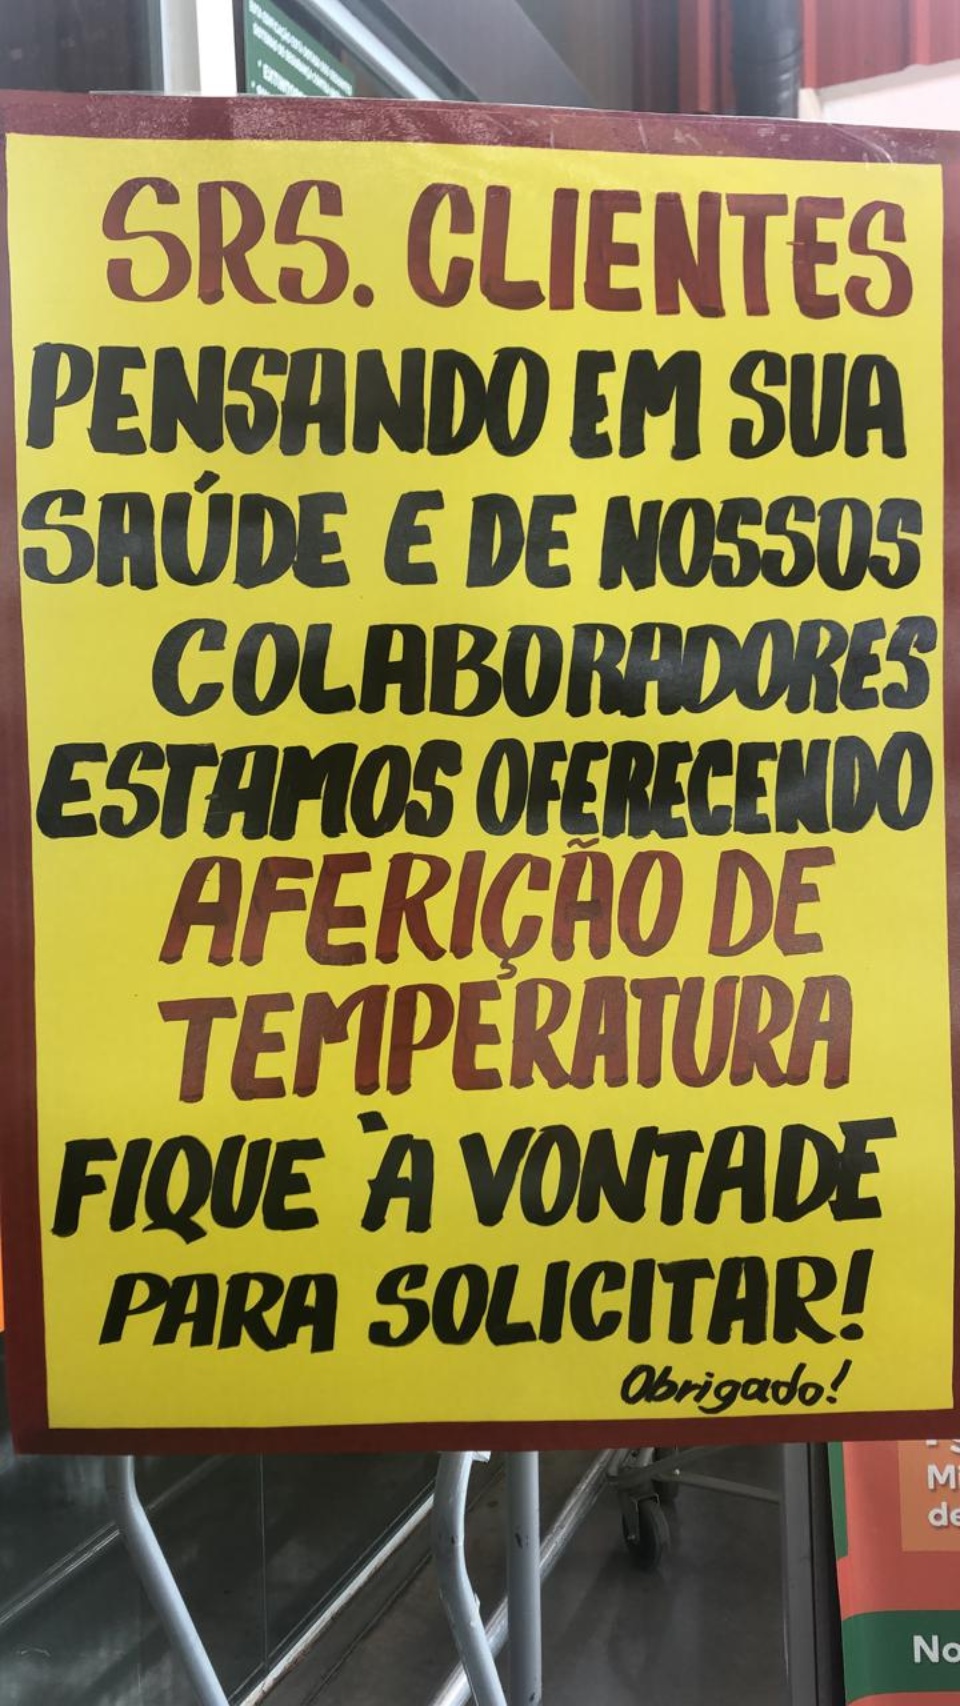 SRS. CLIENTES
PENSANDO EM SUA
SAÚDE E DE NOSSOS
COLABORADORES
ESTAMOS OFERECENDO
AFERIÇÃO DE
TEMPERATURA
FIQUE À VONTADE
PARA SOLICITAR!
Obrigado!
Mi
de
No